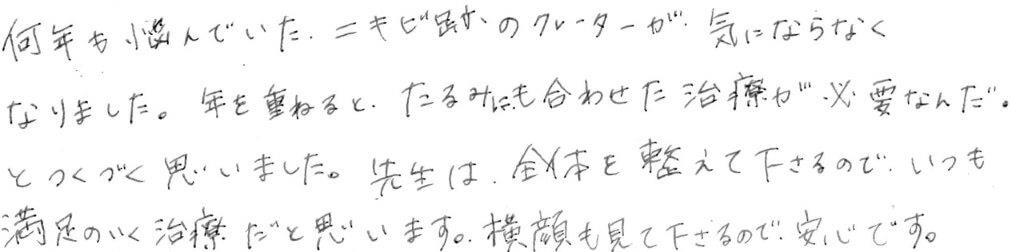 何年も悩んでいた、ニキビ跡のクレーターが、気にならなく
なりました。年を重ねると、たるみにも合わせた治療が必要なんだ。
とつくづく思いました。先生は、全体を整えて下さるので、いつも
満足のいく治療だと思います。横顔も見て下さるので、安心です。